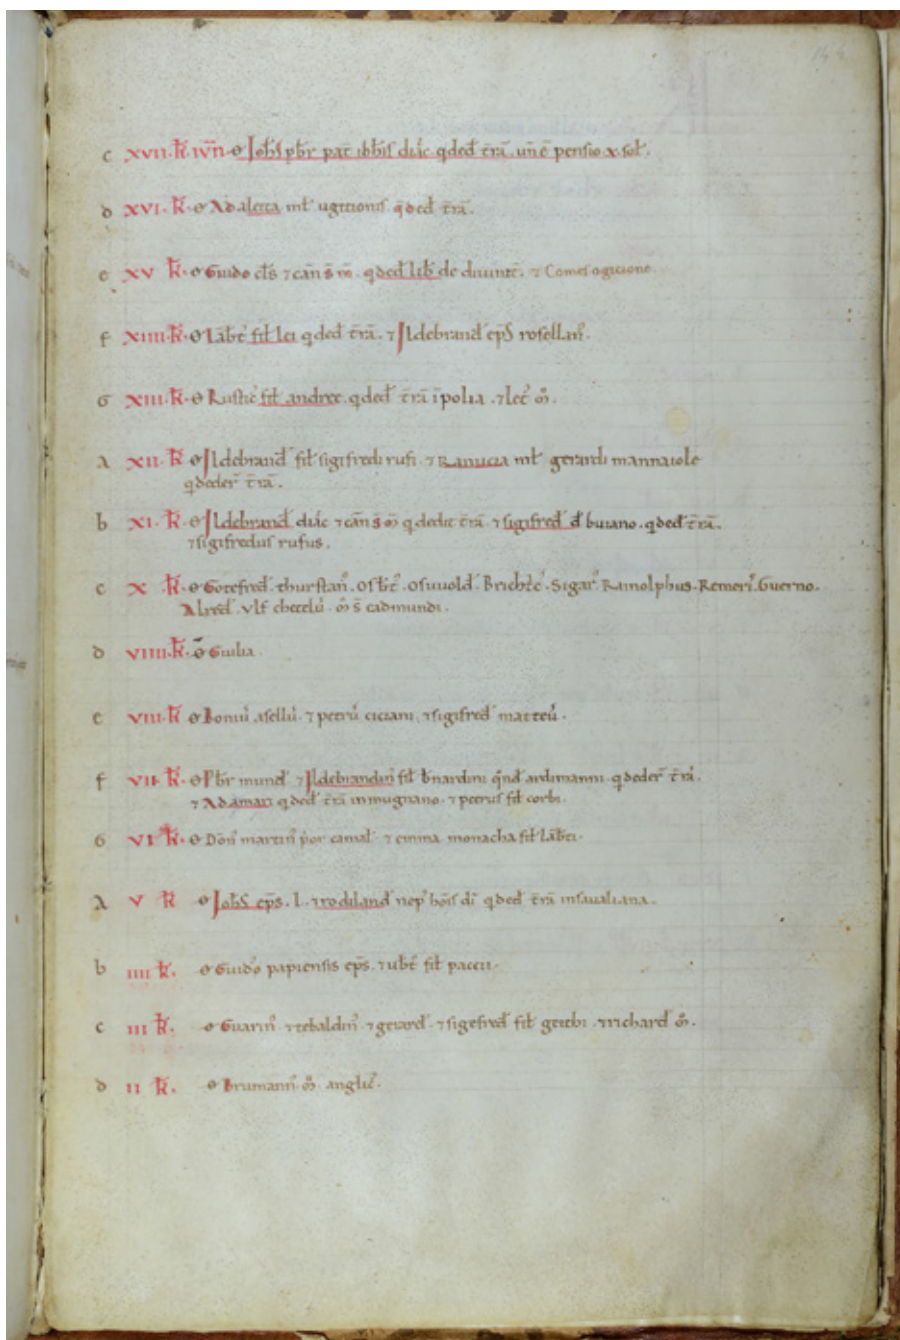 c XVII. k̅l. IVN̅ ɵ Joh̅s pb̅r pat̅ ioh̅is diac̅ q̅ ded̅ t̅ra̅. un̅ e̅ pensio x sol̅.
d XVI. k̅l. ɵ Adaleita ml̅ ugicionis q̅ ded̅ t̅ra̅.
e XV k̅l. ɵ Guido cl̅s ⁊ can̅ s̅ m̅. q ded̅ lib̅ de diuinit̅. ⁊ Comes ogicione
f XIIII. k̅l. ɵ La̅b̅t᾽ fil̅ lei q ded̅ t̅ra̅. ⁊ Jldebrand᾽ ep̅s rosellan᾽.
G XIII. k̅l. ɵ Rustic᾽ fil̅ andree. q ded̅ t̅ra̅ i̅ polia. ⁊ lec᾽ m̊.
A XII. k̅l. ɵ Jldebrand᾽ fil̅ sigifredi rufi. ⁊ Ranucia ml̅ gerardi mannaiole
q deder̅ t̅ra̅.
b XI. k̅l. ɵ Jldebrand᾽ diac̅ ⁊ can̅ s̅ m̊ q dedit t̅ra̅. ⁊ sigifred᾽ d̅ buiano. q ded̅ t̅ra̅.
⁊ sigifredus rufus.
c X k̅l. ɵ Gotefred᾽. thurstan᾽. Osb̅t᾽. Osuuold᾽. Bricht̅c᾽. Sigar᾽. Ranolphus. Remeri᾽. Guerno.
Alfred᾽. Vlf chetelu̅. m̊ s̅ eadmundi.
d VIIII. k̅l. ɵ Giulia.
e VIII. k̅l. ɵ Bonu̅ asellu̅. ⁊ petru̅ ciciani. ⁊ sigifred᾽ matteu̅.
f VII. k̅l. ɵ Pb̅r mund᾽ ⁊ Jldebrandin᾽ fil̅ b̅nardini q̅nd᾽ ardimanni. q deder̅ t̅ra̅.
⁊ Adamari q ded̅ t̅ra̅ in mugnano. ⁊ petrus fil̅ corbi.
G VI k̅l. ɵ Don̅ martin᾽ p̅or camal᾽ ⁊ emma monacha fil̅ la̅b̅ti.
A V k̅l ɵ Joh̅s ep̅s. l. ⁊ rodiland᾽ nep᾽ ho̅is di̅ q ded̅ t̅ra̅ insaualiana.
b IIII k̅l. ɵ Guido papiensis ep̅s. ⁊ ub̅t᾽ fil̅ paccii.
c III k̅l. ɵ Guarin᾽ ⁊ tebaldin᾽. ⁊ gerard᾽. ⁊ sigefred᾽ fil̅ gerebi. ⁊ richard᾽ m̊.
d II k̅l. ɵ Brumann᾽ m̊. anglic᾽.